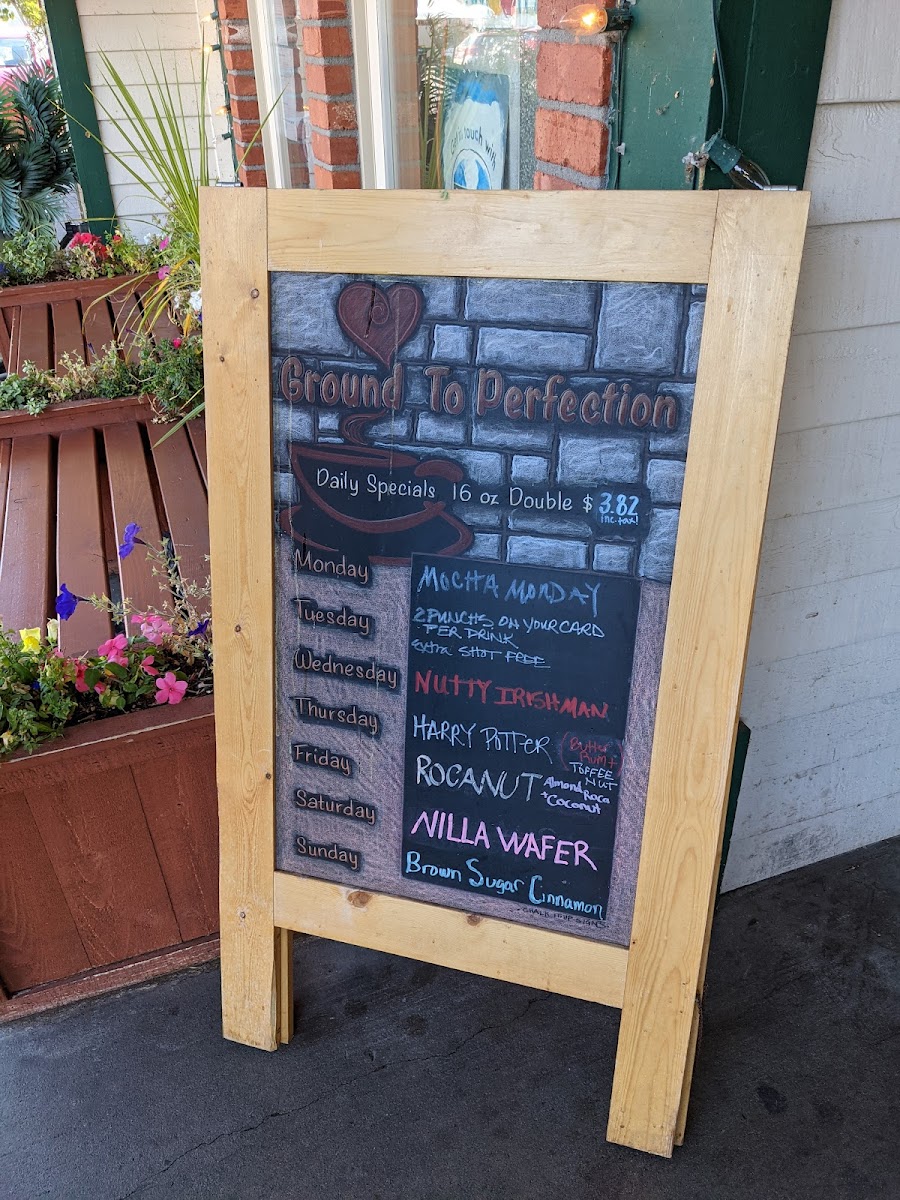 get in touch with
Ground To Perfection
Daily Specials 16 oz Double $ 3.82
inc. tax!
Monday MOCHA MONDAY
Tuesday 2 PUNCHS ON YOUR CARD
PER DRINK
Extra SHOT FREE
Wednesday NUTTY IRISHMAN
Thursday HARRY POTTER (Butter
Rum +
TOFFEE
NUT
Friday ROCANUT Almond Roca
+ Coconut
Saturday NILLA WAFER
Sunday Brown Sugar Cinnamon